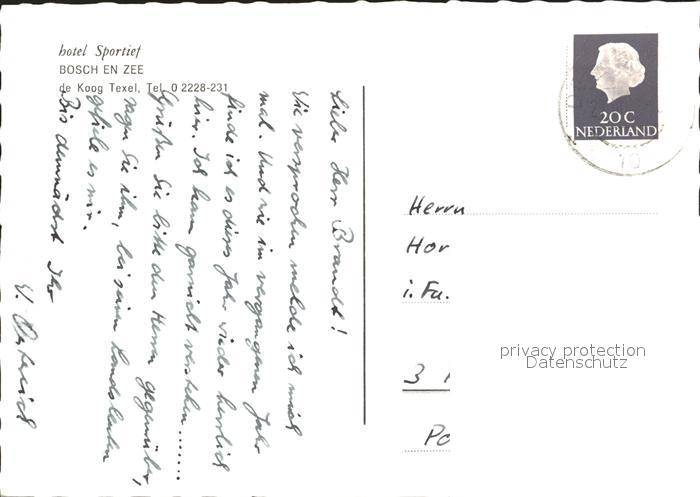 hotel Sportief
BOSCH EN ZEE
de Koog Texel, Tel. 0 2228-231
Lieber Herr Brandt!
Wie versprochen melde ich mich
mal. Und wie im vergangenen Jahr
finde ich es dieses Jahr wieder herrlich
hier. Ich kann garnicht verstehen.......
Grüßen Sie bitte den Herrn gegenüber,
sagen Sie ihm, bei seinen Landsleuten
gefiele es mir.
Bis demnächst Ihr
20 C
NEDERLAND
10
Herrn
Hor
i. Fa.
3
Po
privacy protection
Datenschutz